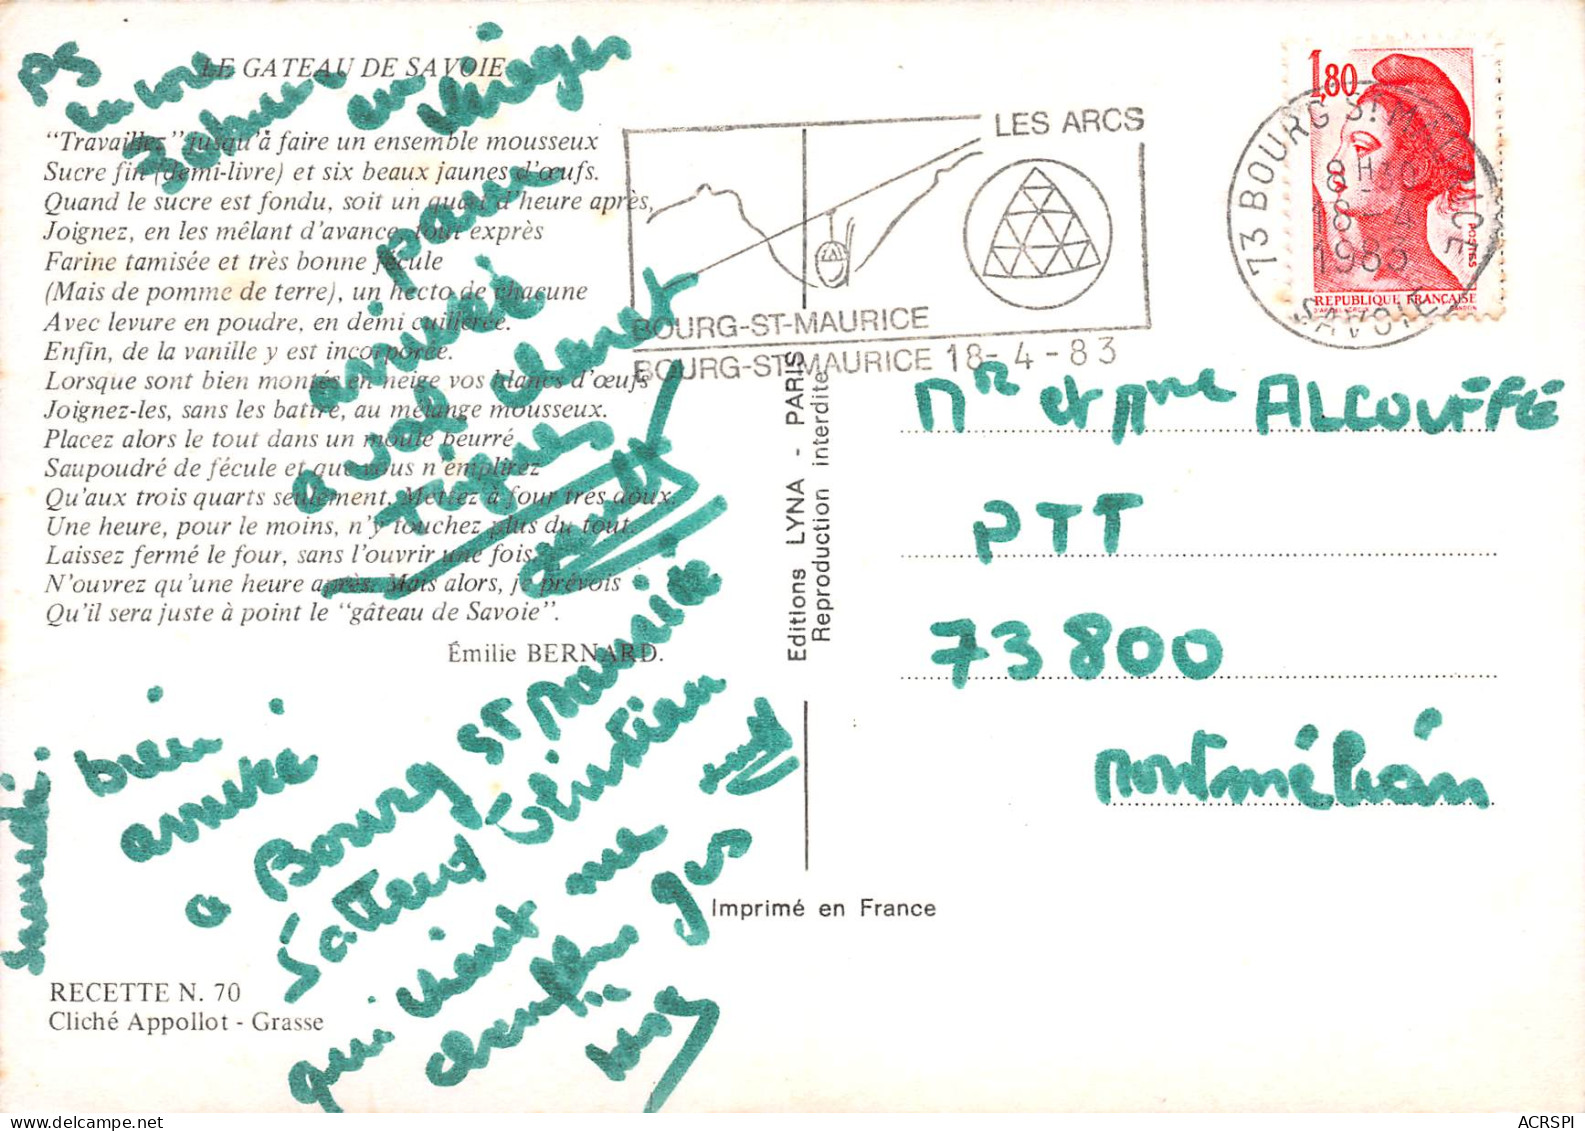 LE GATEAU DE SAVOIE
"Travaillez" jusqu'à faire un ensemble mousseux
Sucre fin (demi-livre) et six beaux jaunes d'œufs.
Quand le sucre est fondu, soit un quart d'heure après,
Joignez, en les mêlant d'avance, tout exprès
Farine tamisée et très bonne fécule
(Mais de pomme de terre), un hecto de chacune
Avec levure en poudre, en demi cuillerée.
Enfin, de la vanille y est incorporée.
Lorsque sont bien montés en neige vos blancs d'œufs
Joignez-les, sans les battre, au mélange mousseux.
Placez alors le tout dans un moule beurré
Saupoudré de fécule et que vous n'emplirez
Qu'aux trois quarts seulement. Mettez à four très doux.
Une heure, pour le moins, n'y touchez plus du tout.
Laissez fermé le four, sans l'ouvrir une fois.
N'ouvrez qu'une heure après. Mais alors, je prévois
Qu'il sera juste à point le "gâteau de Savoie".
Émilie BERNARD.
PS
arrivée
a val claret
Tignes
samedi.
bien
arrivé
a Bourg st maurice
j'attend christian
qui vient me
chercher
RECETTE N. 70
Cliché Appollot - Grasse
Editions LYNA - PARIS
Reproduction interdite
Imprimé en France
LES ARCS
BOURG-ST-MAURICE
BOURG-ST-MAURICE 18-4-83
1,80
REPUBLIQUE FRANÇAISE
POSTES
73 BOURG ST MAURICE
8H30
18-4
1983
SAVOIE
Mr et Mme ALCOUFFE
PTT
73800
montmélian
ACRSPI